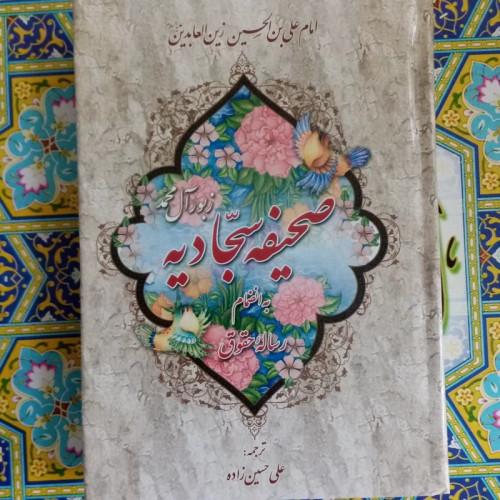 امام علی بن الحسین زین العابدین
زبور آل محمد
صحیفه سجّادیه
به انضمام
رسالهٔ حقوق
ترجمه:
علی حسین زاده